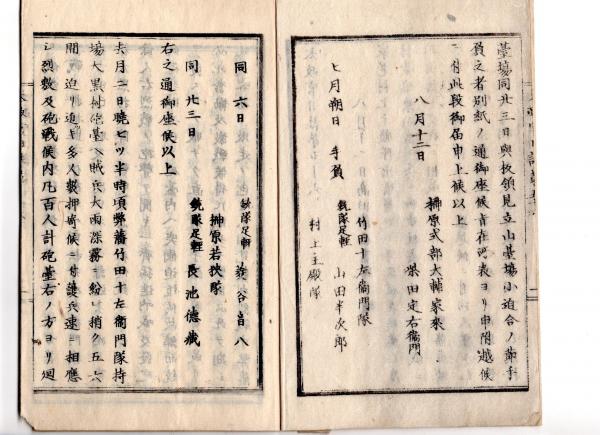 臺場同廿三日與板領見立山臺場小迫合ノ節手
負之者別紙ノ通御座候旨在河表ヨリ申附越候
ニ付此段御届申上候以上
八月十二日
榊原式部大輔家来
柴田定右衞門
竹田十左衞門隊
七月朔日 手負
銃隊足輕 山田半次郎
村上主殿隊
同 六日
銃隊足輕
同 廿三日
榊原若狹隊
銃隊足輕 長池德藏
右之通御座候以上
去月二日曉七ツ半時頃弊藩竹田十左衞門隊持
場大黒村砲臺ヘ賊兵大雨深霧ニ紛レ稍ク五六
間迫リ迫モ多人数押寄候ニ付護兵速ニ相應
シ烈敷及砲戰候内凡百人計砲臺右ノ方ヨリ廻